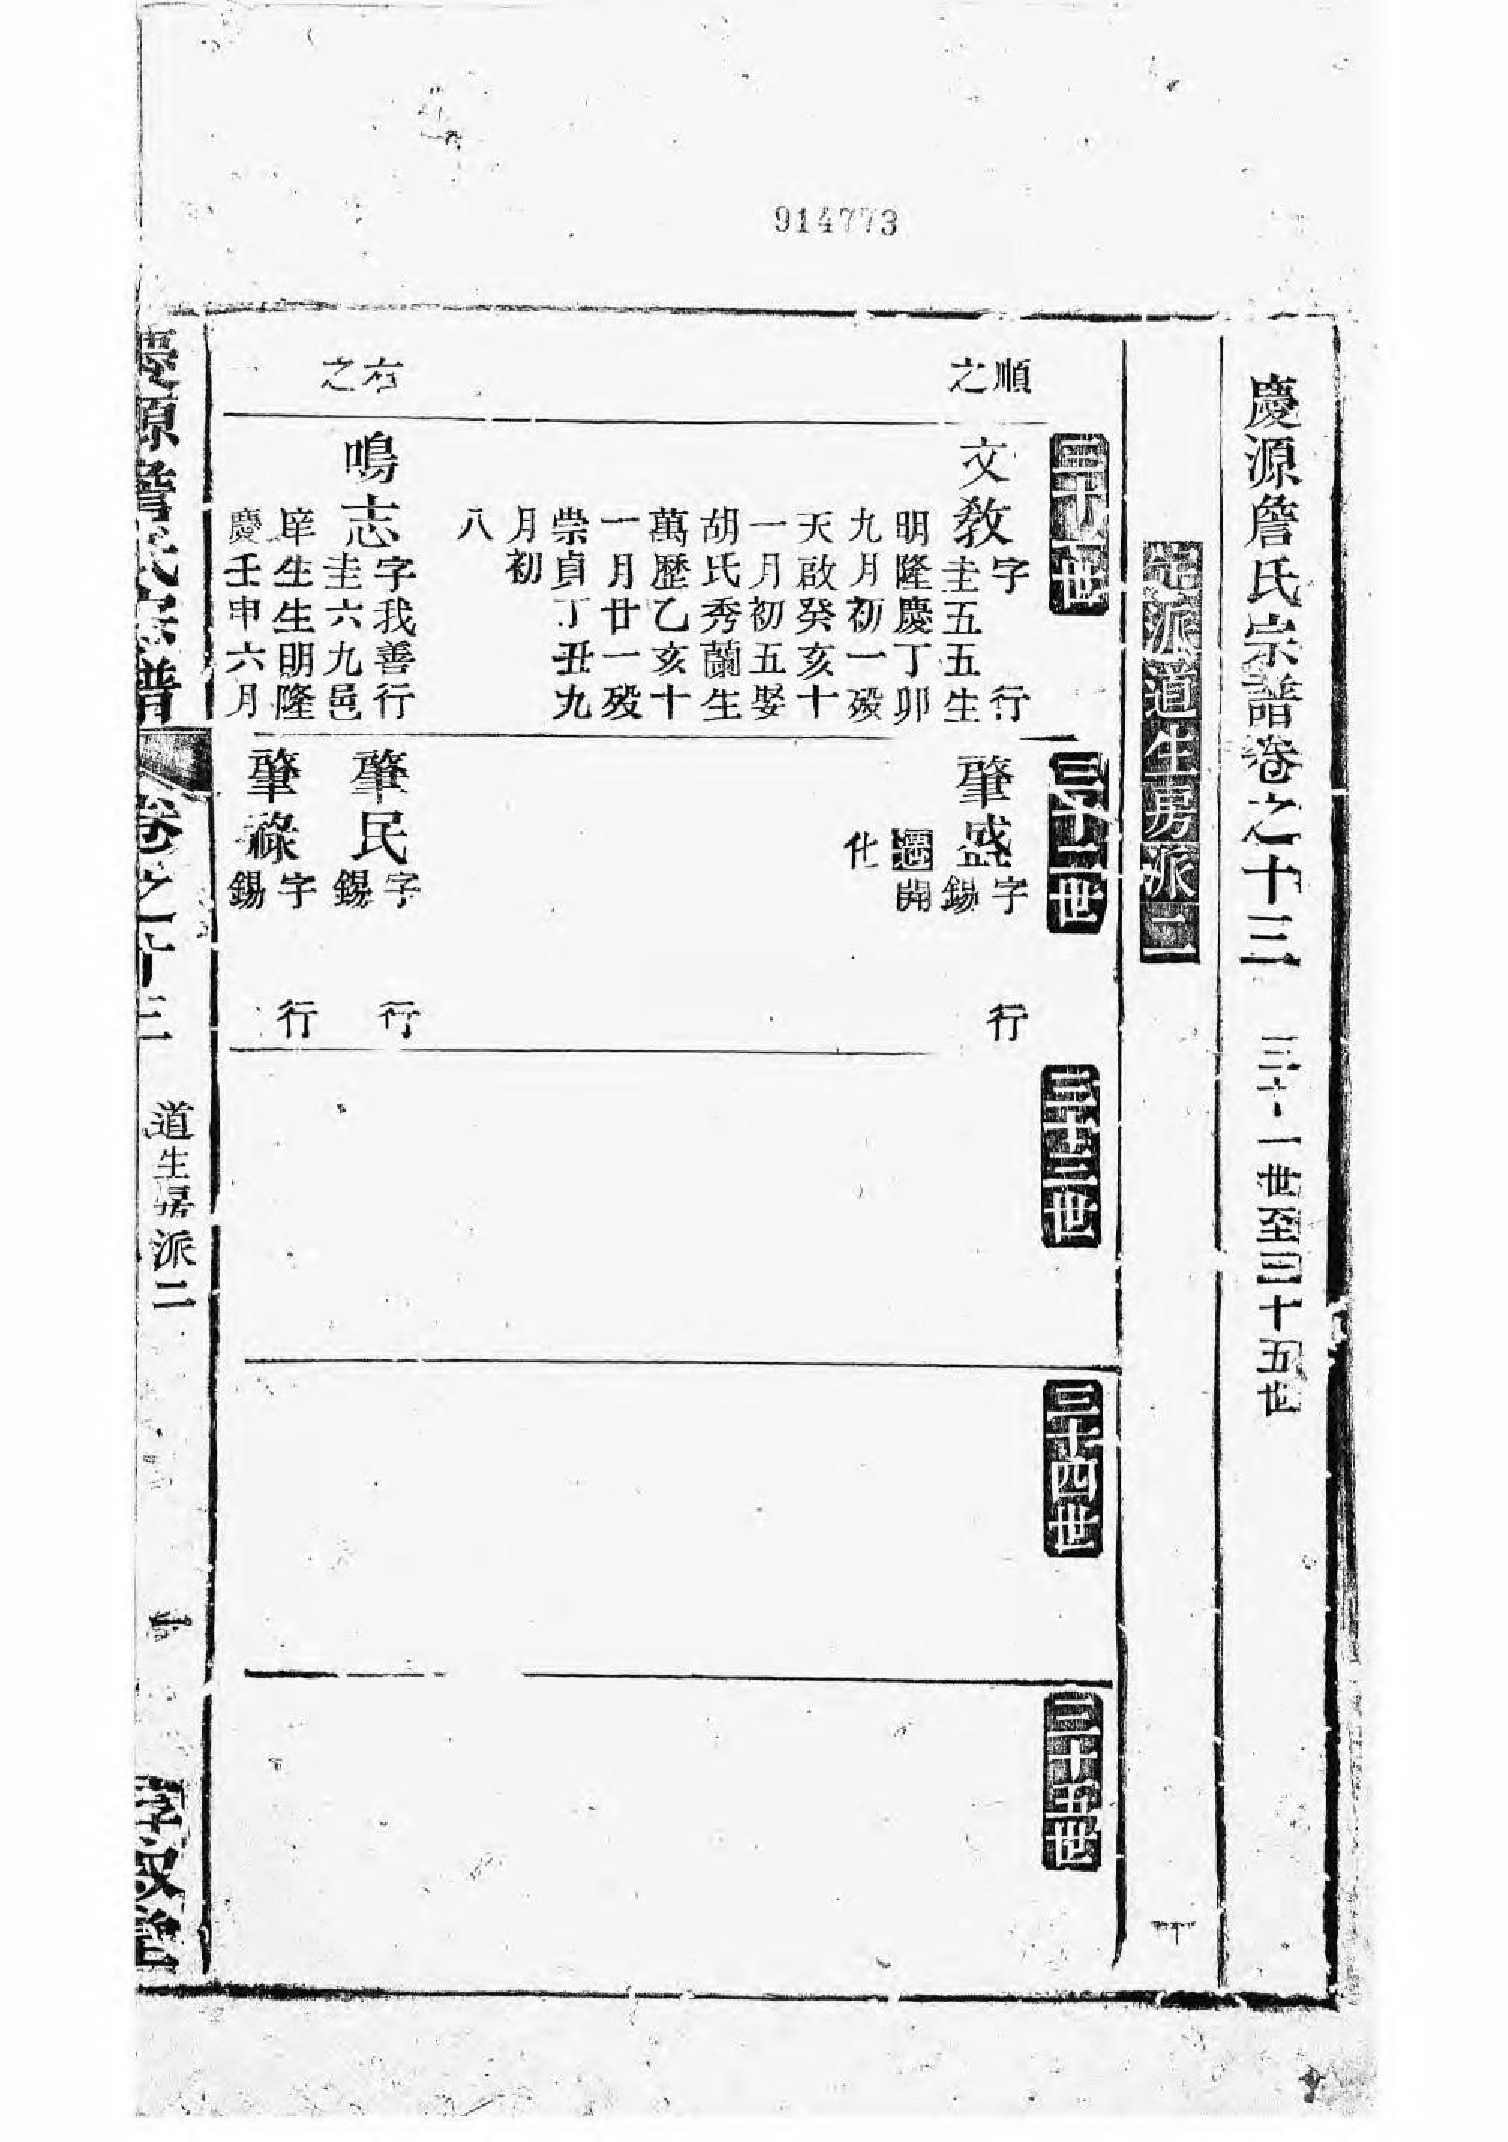 914773
慶源詹氏宗譜卷之十三 三十一世至三十五世
派道生房派二
三十一世
順之
文教 字 行
圭五五生
明隆慶丁卯
九月初一歿
天啟癸亥十
一月初五娶
胡氏秀蘭生
萬歷乙亥十
一月廿一歿
崇貞丁丑九
月初
八
右之
鳴志 字我善行
圭六九邑
庠生生明隆
慶壬申六月
三十二世
肇盛 字 行
錫
遷開
化
肇民 字 行
錫
肇祿 字 行
錫
三十三世
三十四世
三十五世
慶源詹氏宗譜 卷之十三 道生房派二